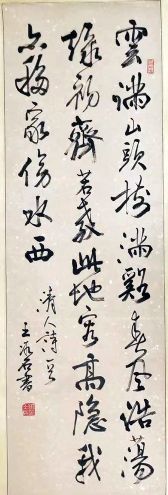 雲滿山頭樹滿谿春風浩蕩
綠初齊若教此地容高隱我
亦移家傍水西
清人詩
王 石書